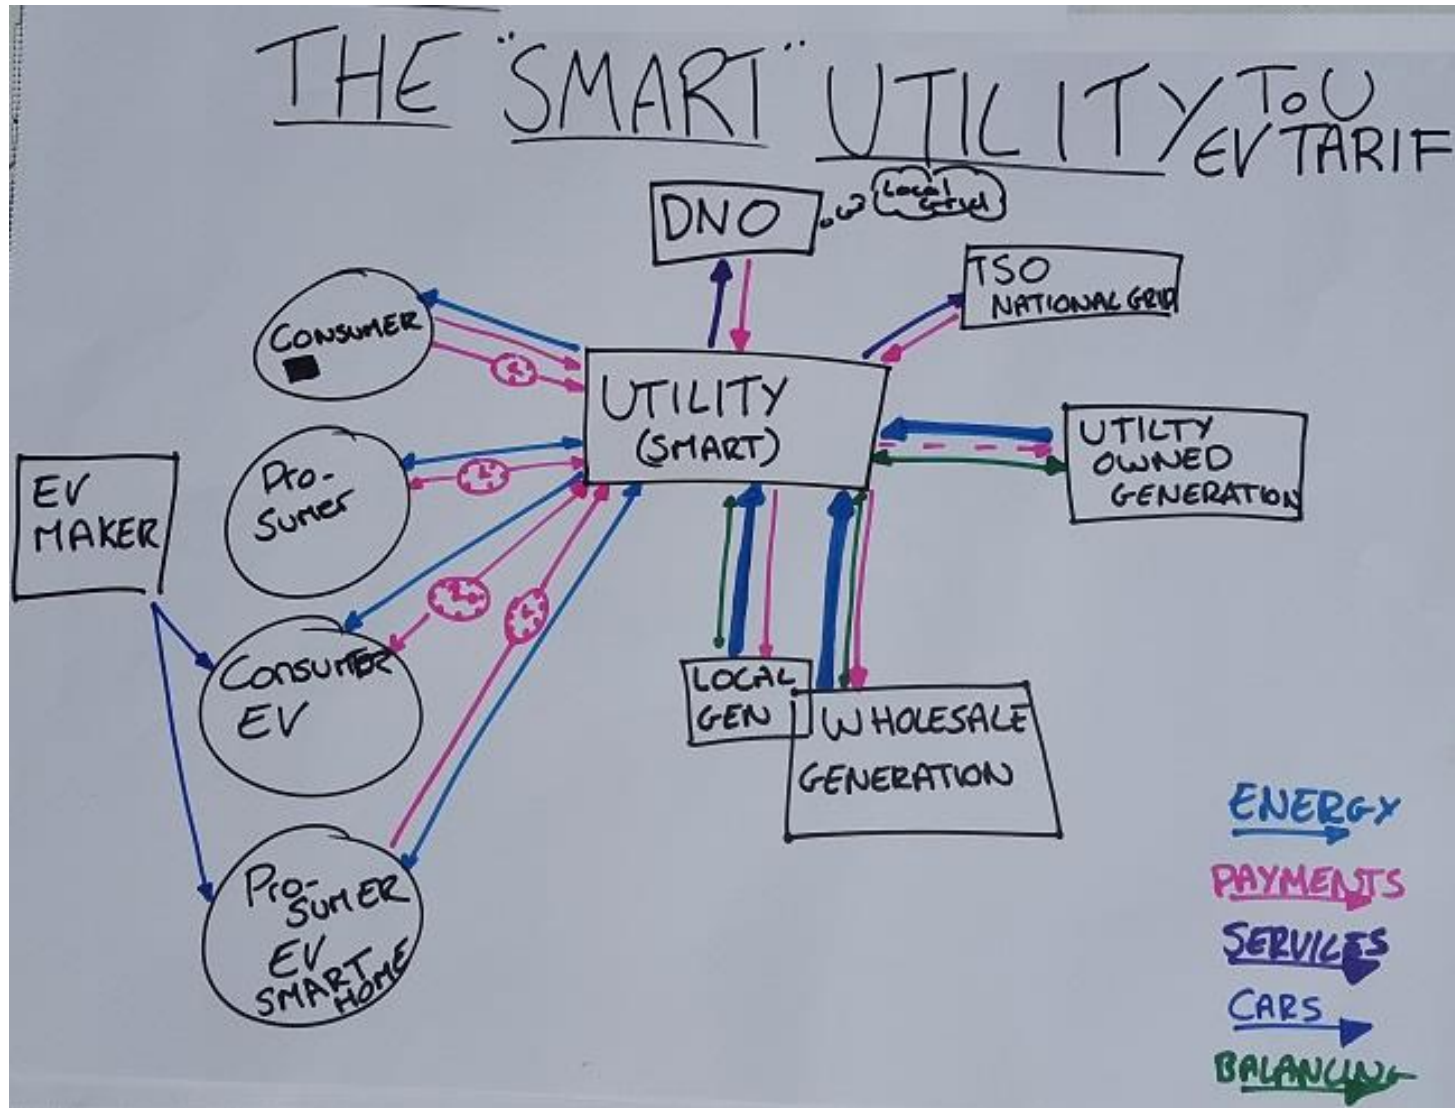 THE "SMART" UTILITY
ToU
EV TARIF
DNO
Local
Grid
TSO
NATIONAL GRID
CONSUMER
UTILITY
(SMART)
UTILTY
OWNED
GENERATION
Pro-
Sumer
EV
MAKER
CONSUMER
EV
LOCAL
GEN
WHOLESALE
GENERATION
Pro-
SUMER
EV
SMART
HOME
ENERGY
PAYMENTS
SERVICES
CARS
BALANCING